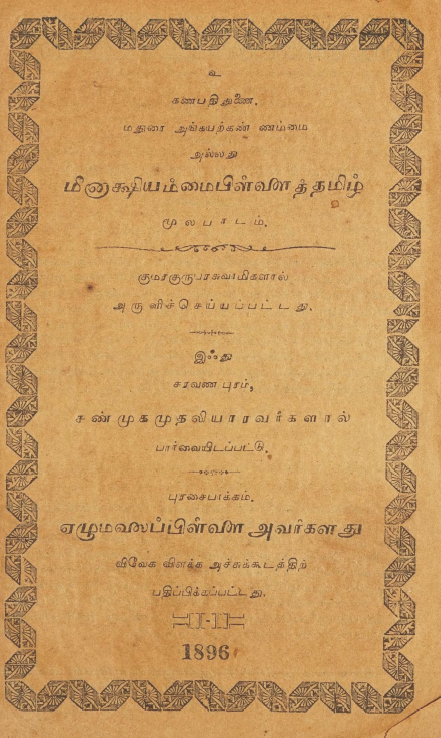 உ
கணபதி துணை.
மதுரை அங்கயற்கண் ணம்மை
அல்லது
மீனாக்ஷியம்மைபிள்ளைத்தமிழ்
மூலபாடம்.
குமரகுருபரசுவாமிகளால்
அருளிச்செய்யப்பட்டது.
இஃது
சரவண புரம்,
சண்முகமுதலியாரவர்களால்
பார்வையிடப்பட்டு.
புரசைபாக்கம்.
ஏழுமலைப்பிள்ளை அவர்களது
விவேக விளக்க அச்சுக்கூடத்திற்
பதிப்பிக்கப்பட்டது.
1896